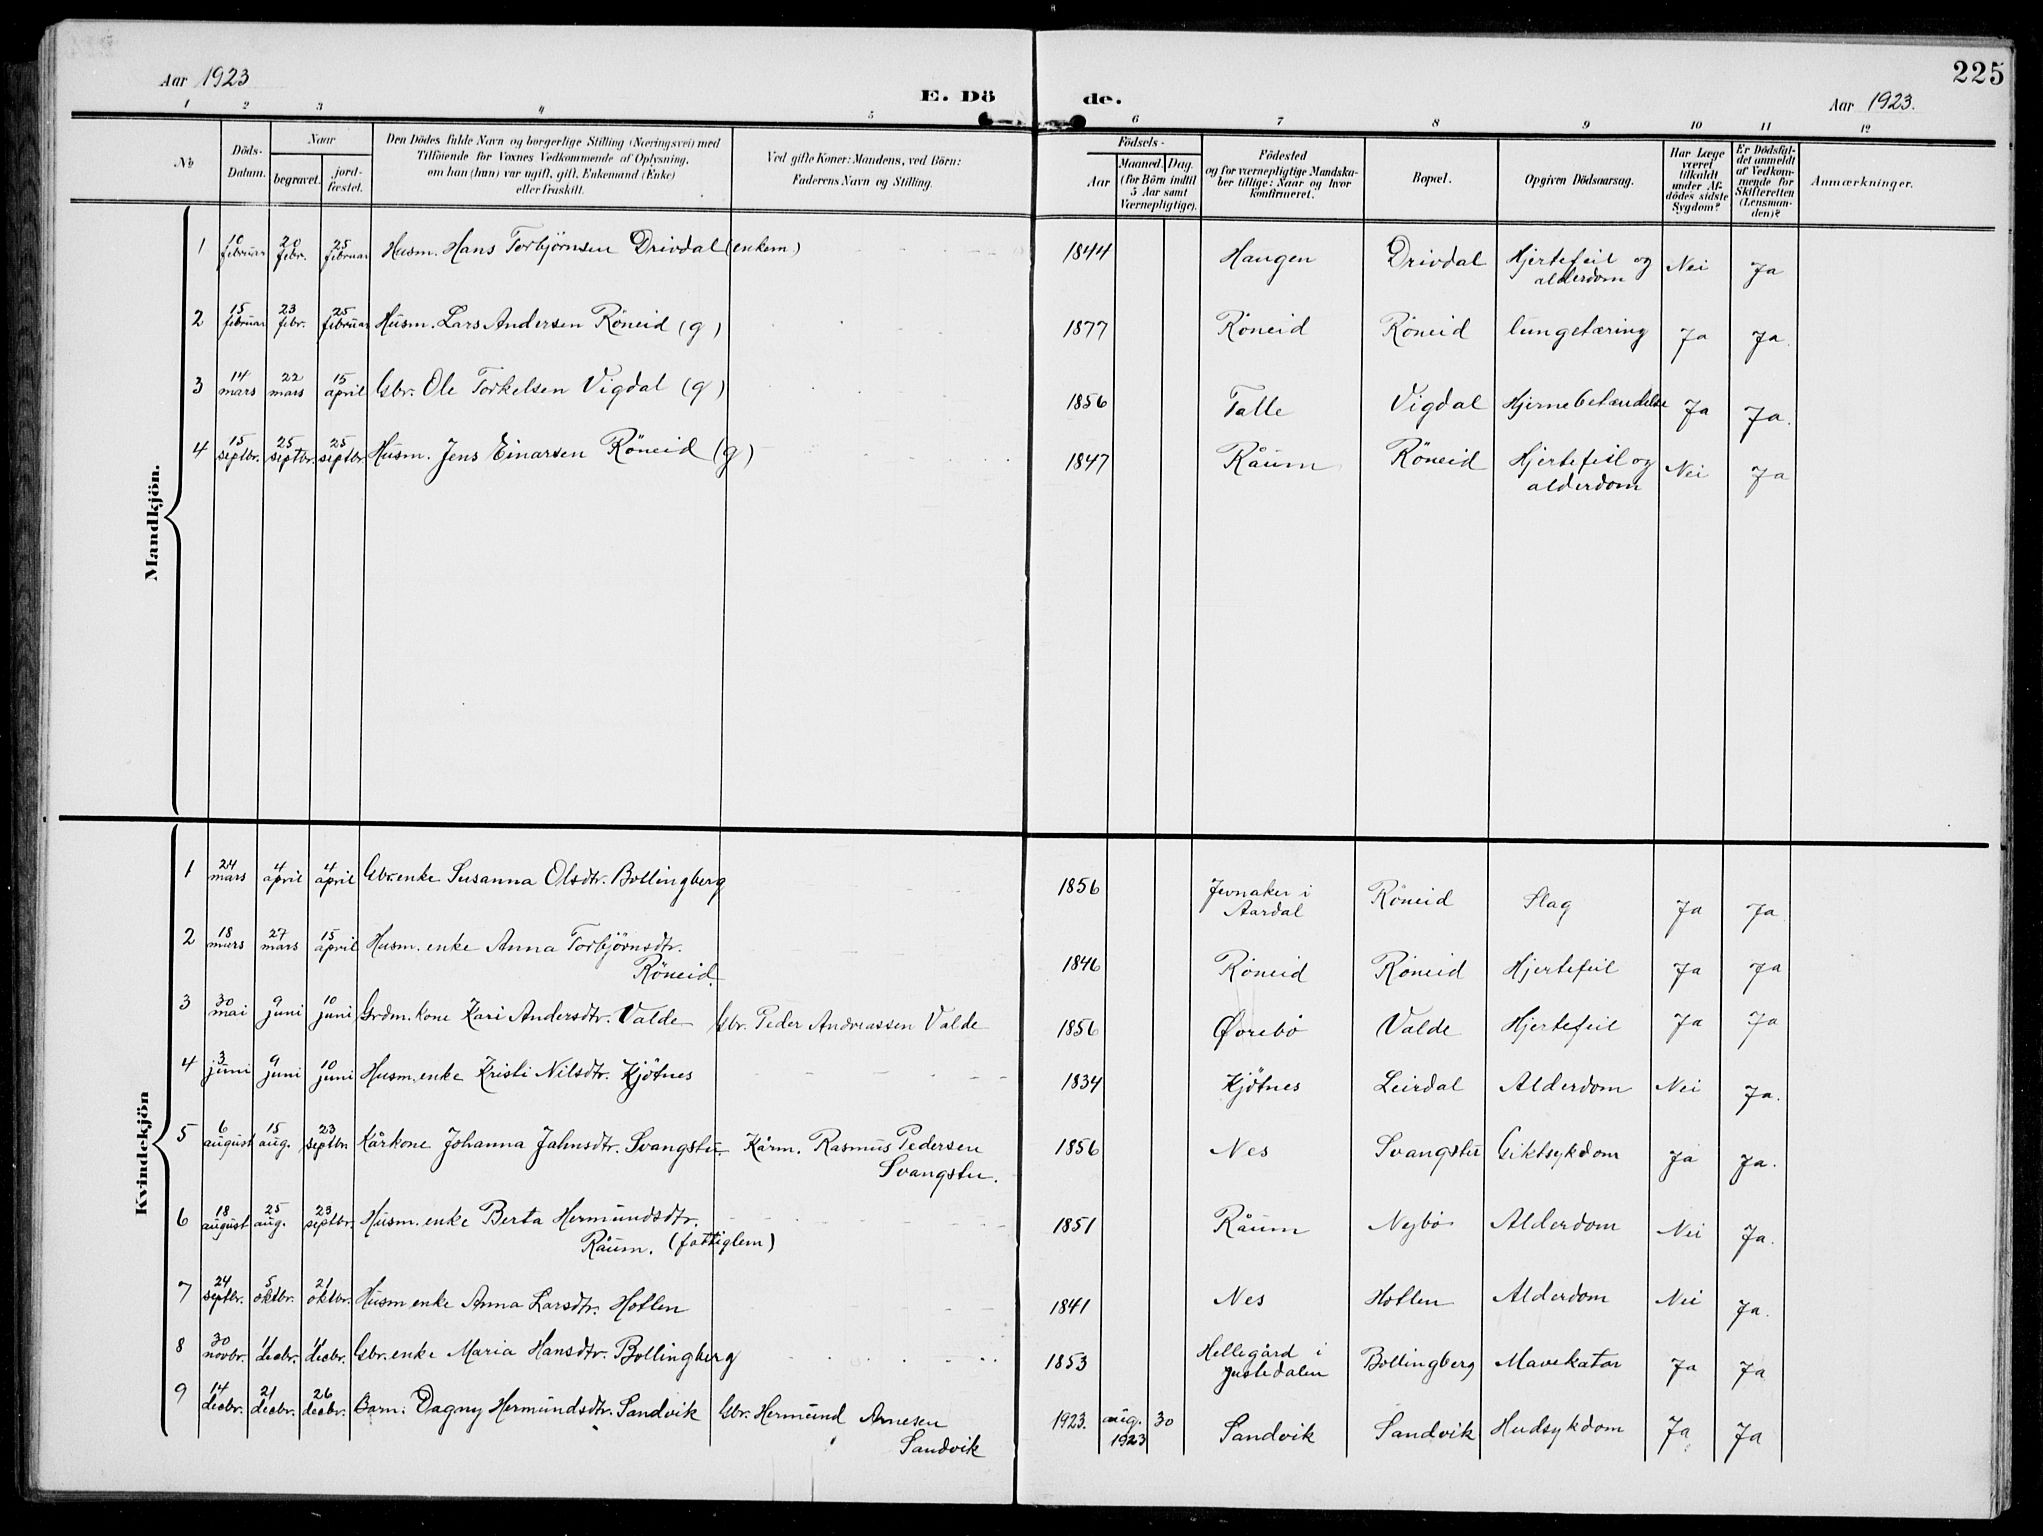 225
Aar 1923
E. Dö
de.
Aar 1923.
1 2 3 4 5 6 7 8 9 10 11 12
No
Döds-
Datum.
Naar
begravet.
jord-
fæstet.
Den Dödes fulde Navn og borgerlige Stilling (Næringsvei) med
Tilföiende for Voxnes Vedkommende af Oplysning,
om han (hun) var ugift, gift, Enkemand (Enke)
eller fraskilt.
Ved gifte Koner: Mandens, ved Börn:
Faderens Navn og Stilling.
Födsels-
Aar
Maaned. Dag.
(for Börn indtil
5 Aar samt
Værnepligtige).
Födested
og for værnepligtige Mandska-
ber tillige: Naar og hvor
konfirmeret.
Bopæl.
Opgiven Dödsaarsag.
Har Læge
været
tilkaldt
under Af-
dödes sidste
Sygdom?
Er Dödsfal-
det anmeldt
af Vedkom-
mende for
Skifteretten
(Lensman-
den)?
Anmærkninger.
Mandkjön.
1 10 februar 20 febr. 25 februar Husm. Hans Torbjørnsen Drivdal (enkem) 1844 Haugen Drivdal Hjertefeil og
alderdom Nei Ja
2 15 februar 23 febr. 25 februar Husm. Lars Andersen Röneid (g) 1877 Röneid Röneid lungetæring Ja Ja.
3 14 mars 22 mars 15 april Gbr. Ole Torkelsen Vigdal (g) 1856 Talle Vigdal Hjernebetændelse Ja Ja.
4 15 septbr. 25 septbr. 25 septbr. Husm. Jens Einarsen Röneid (g) 1847 Råum Röneid Hjertefeil og
alderdom Nei Ja
Kvindekjön
1 24 mars 4 april 4 april Gbr.enke Susanna Olsdtr. Bollingberg 1856 Jevnaker i
Aardal Röneid Slag Ja Ja
2 18 mars 27 mars 15 april Husm. enke Anna Torbjørnsdtr.
Röneid. 1846 Röneid Röneid Hjertefeil Ja Ja
3 30 mai 9 juni 10 juni Grdm. kone Kari Andersdtr. Valde Gbr. Peder Andreassen Valde 1856 Ørebö Valde Hjertefeil Ja Ja
4 3 juni 9 juni 10 juni Husm.enke Kristi Nilsdtr. Kjötnes 1834 Kjötnes Leirdal Alderdom Nei Ja.
5 6 august 15 aug. 23 septbr. Kårkone Johanna Jahnsdtr. Svangstu Kårm. Rasmus Pedersen
Svangstu. 1856 Nes Svangstu Giktsykdom Ja Ja.
6 18 august 25 aug. 23 septbr. Husm. enke Berta Hermundsdtr.
Råum. (fattiglem) 1851 Råum Nybö Alderdom Nei Ja.
7 24 septbr. 5 oktbr. 21 oktbr. Husm enke Anna Larsdtr. Hotlen 1841 Nes Hotlen Alderdom Nei Ja.
8 30 novbr. 11 decbr. 11 decbr. Gbr.enke Maria Hansdtr. Bollingberg 1853 Hellegård i
Justedalen Bollingberg Mavekatar Ja Ja
9 14 decbr. 21 decbr. 26 decbr. Barn: Dagny Hermundsdtr. Sandvik Gbr. Hermund Arnesen
Sandvik 1923. aug. 30
1923 Sandvik Sandvik Hudsykdom Ja Ja